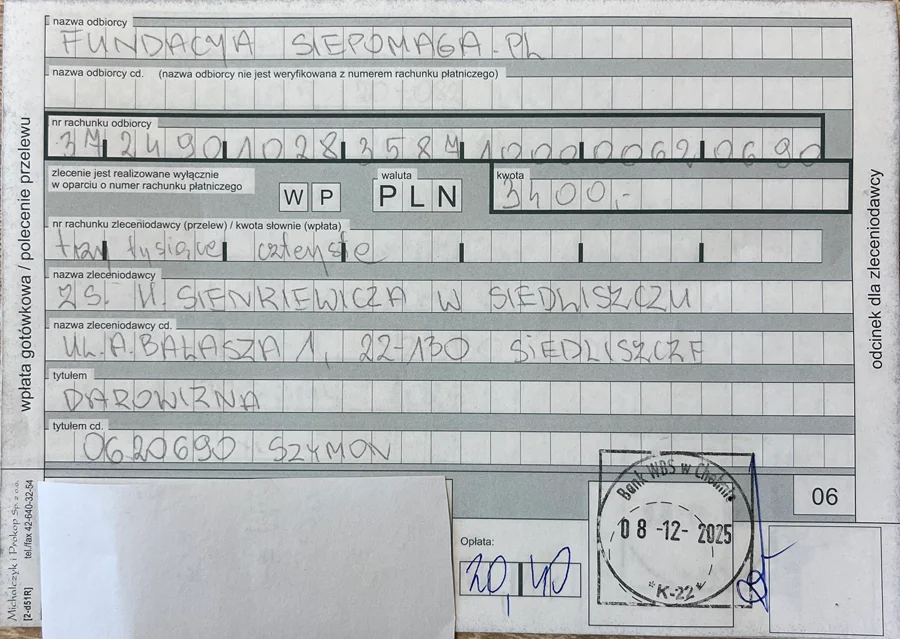 nazwa odbiorcy
FUNDACYJA SIEPOMAGA.PL
nazwa odbiorcy cd. (nazwa odbiorcy nie jest weryfikowana z numerem rachunku płatniczego)
nr rachunku odbiorcy
37 2490 1028 3587 1000 0062 0690
zlecenie jest realizowane wyłącznie
w oparciu o numer rachunku płatniczego
W P
waluta
PLN
kwota
3400,-
nr rachunku zleceniodawcy (przelew) / kwota słownie (wpłata)
trzy tysiące czterysta
nazwa zleceniodawcy
ZS. H. SIENKIEWICZA W SIEDLISZCZU
nazwa zleceniodawcy cd.
UL. A. BAŁASZA 1, 22-130 SIEDLISZCZE
tytułem
DAROWIZNA
tytułem cd.
0620690 SZYMON
06
Opłata:
20,40
Bank WBS w Chełmie
08-12-2025
*K-22*
wpłata gotówkowa / polecenie przelewu
odcinek dla zleceniodawcy
Michalczyk i Prokop Sp. z o.o.
tel./fax 42-640-32-54
[2-d51R]